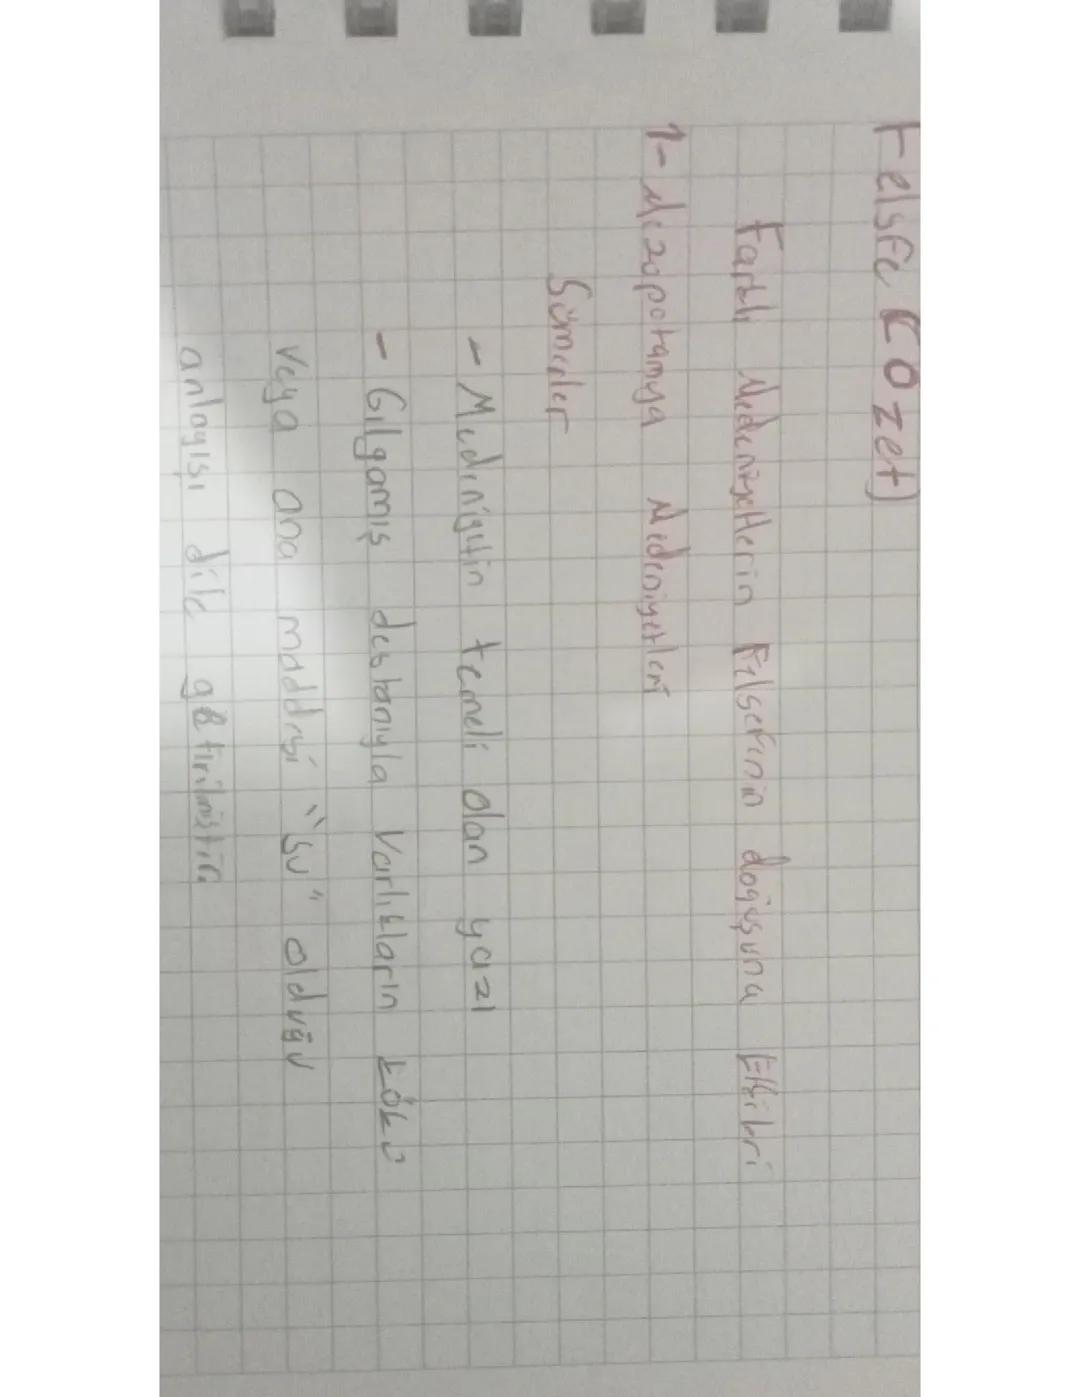 Felsfe (Özet)
Farklı Medeniyetlerin Felsefinin doğuşuna Etkileri
1- Mezopotamya Medeniyetleri
Sümerler
- Medeniyetin temeli olan yazı
- Gılgamış destanıyla varlıkların kökü
veya ana maddesi "su" olduğu
anlayışı dile getirilmiştir